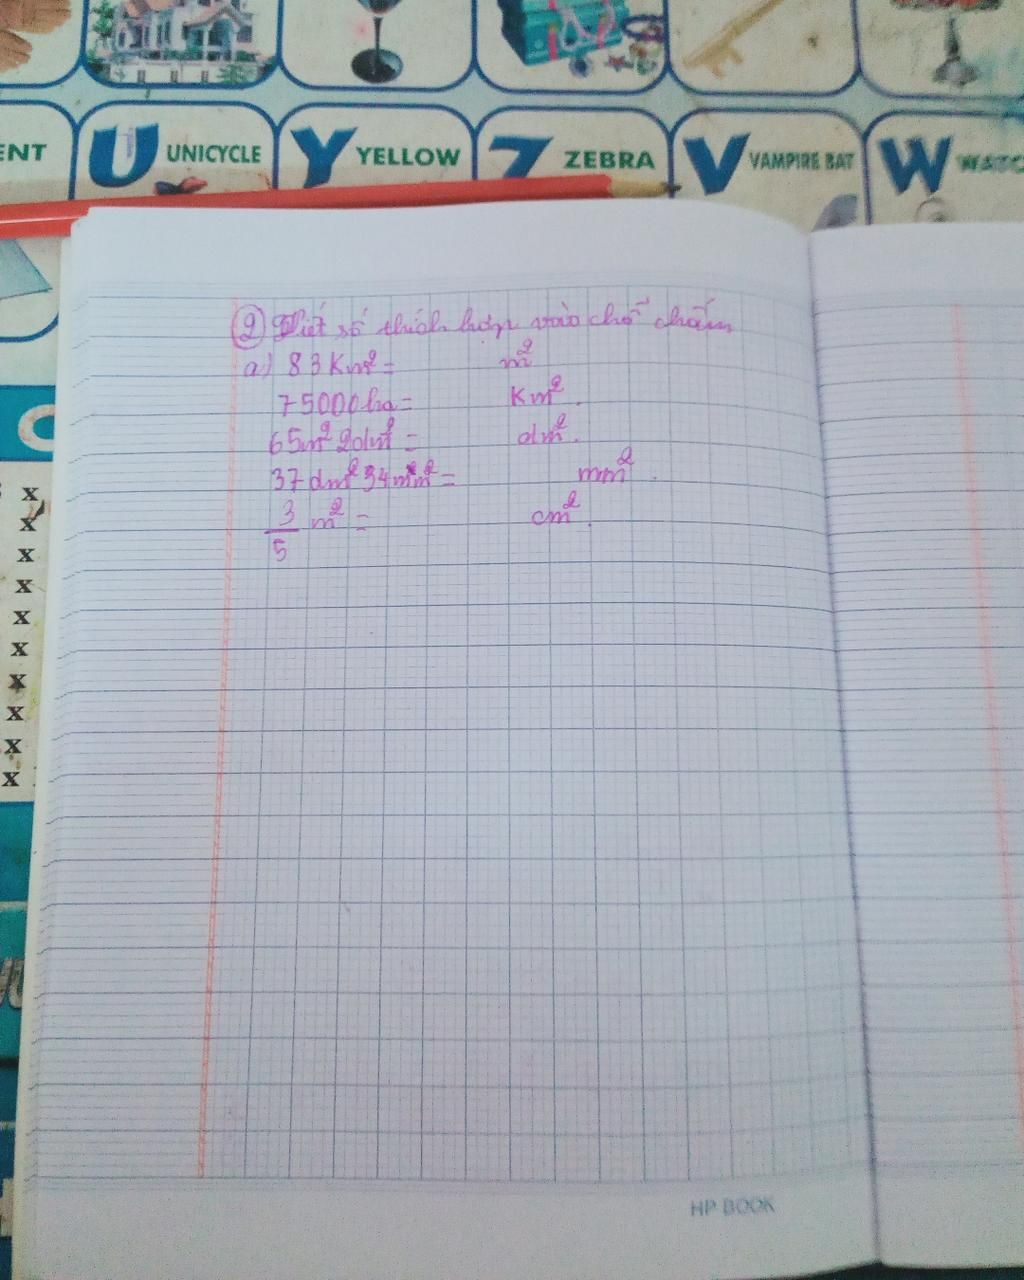 ENT
U UNICYCLE
Y YELLOW
Z ZEBRA
V VAMPIRE BAT
W WATC
② Viết số thích hợp vào chỗ chấm
a) 83 Km² = m²
75000 ha = Km².
65m² 2dm² = dm².
37 dm² 34 mm² = mm².
3/5 m² = cm².
C
x
x
x
x
x
x
x
x
x
x
HP BOOK